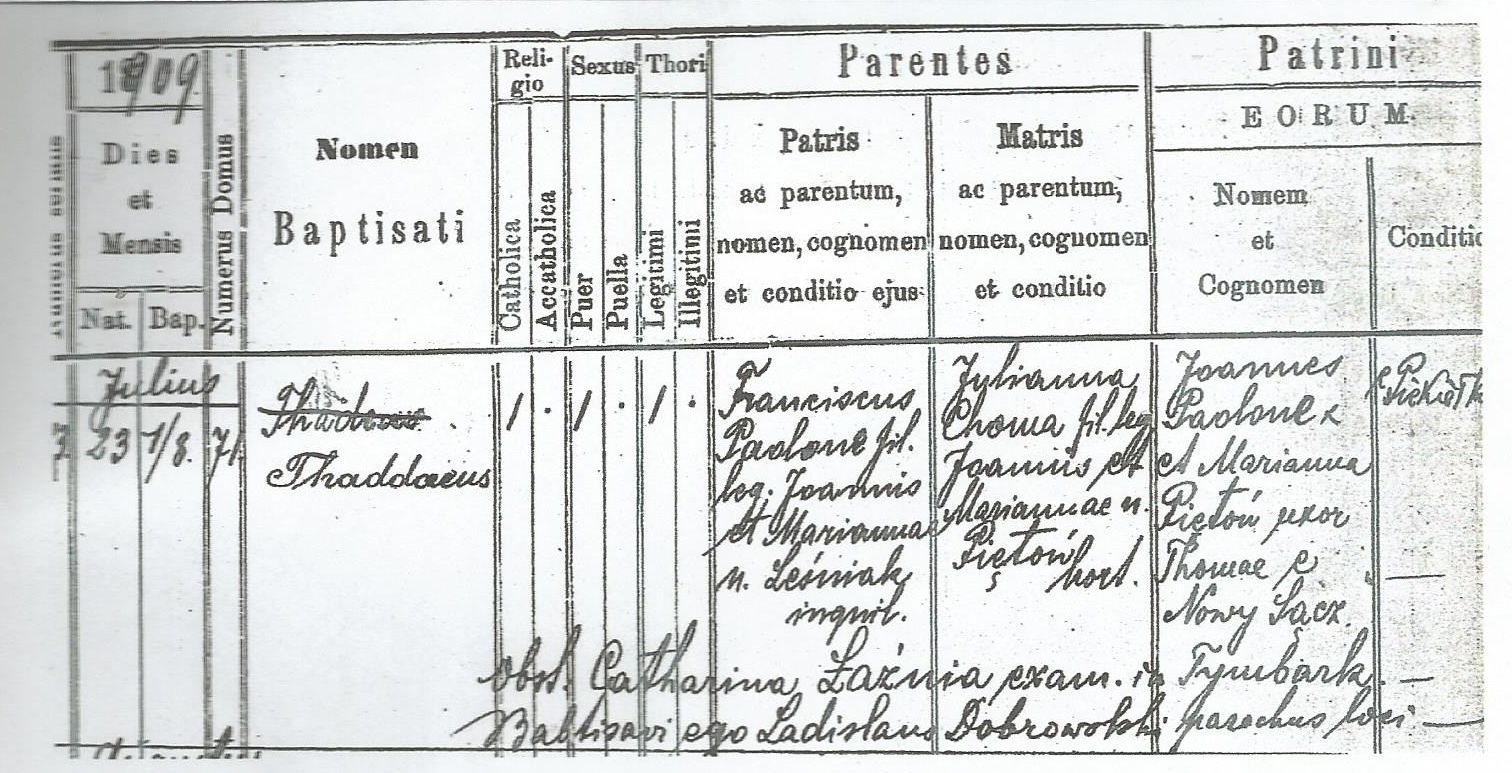 1909.
Dies
et
Mensis
Nat.
Bap.
Numerus Domus
Nomen
Baptisati
Reli-
gio
Catholica
Accatholica
Sexus
Puer
Puella
Thori
Legitimi
Illegitimi
Parentes
Patris
ac parentum,
nomen, cognomen
et conditio ejus
Matris
ac parentum,
nomen, cognomen
et conditio
Patrini
EORUM
Nomem
et
Cognomen
Conditio
Julius
3. 23 1/8. 71.
Thaddaeus
1 . 1 . 1 .
Franciscus
fil.
leg. Joannis
et Marianna
n. Leśniak
inquil.
Julianna
Choma fil. leg.
Joannis et
Mariannae n.
Piętoń
hort.
Joannes
et Marianna
Piętoń uxor
Thomae e
Nowy Sącz.
Obst. Catharina Łaźnia exam. in Tymbark. —
Babtisavi ego Ladislaus Dobrowolski parochus loci —